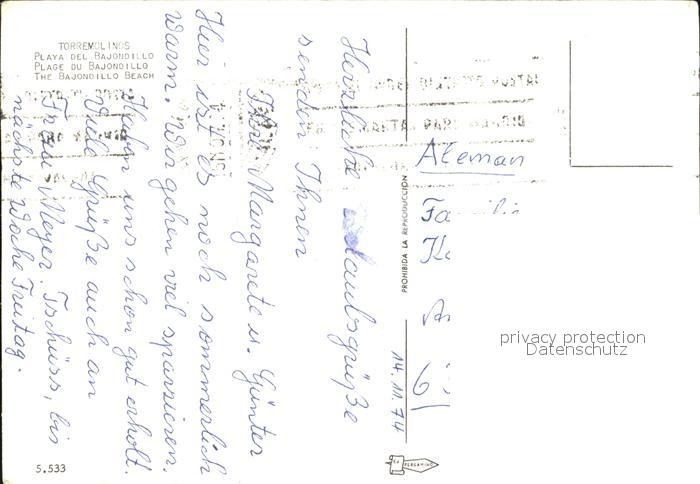 TORREMOLINOS
PLAYA DEL BAJONDILLO
PLAGE DU BAJONDILLO
THE BAJONDILLO BEACH
Herzliche Urlaubsgrüße
senden Ihnen
Ihre Margarete u. Günter
Hier ist es noch sommerlich
warm. Wir gehen viel spazieren.
Haben uns schon gut erholt.
Viele Grüße auch an
Frau Meyer. Tschüss, bis
nächste Woche Freitag.
14.11.74
PROHIBIDA LA REPRODUCCIÓN
Aleman
Familie
privacy protection
Datenschutz
5.533
PERGAMINO